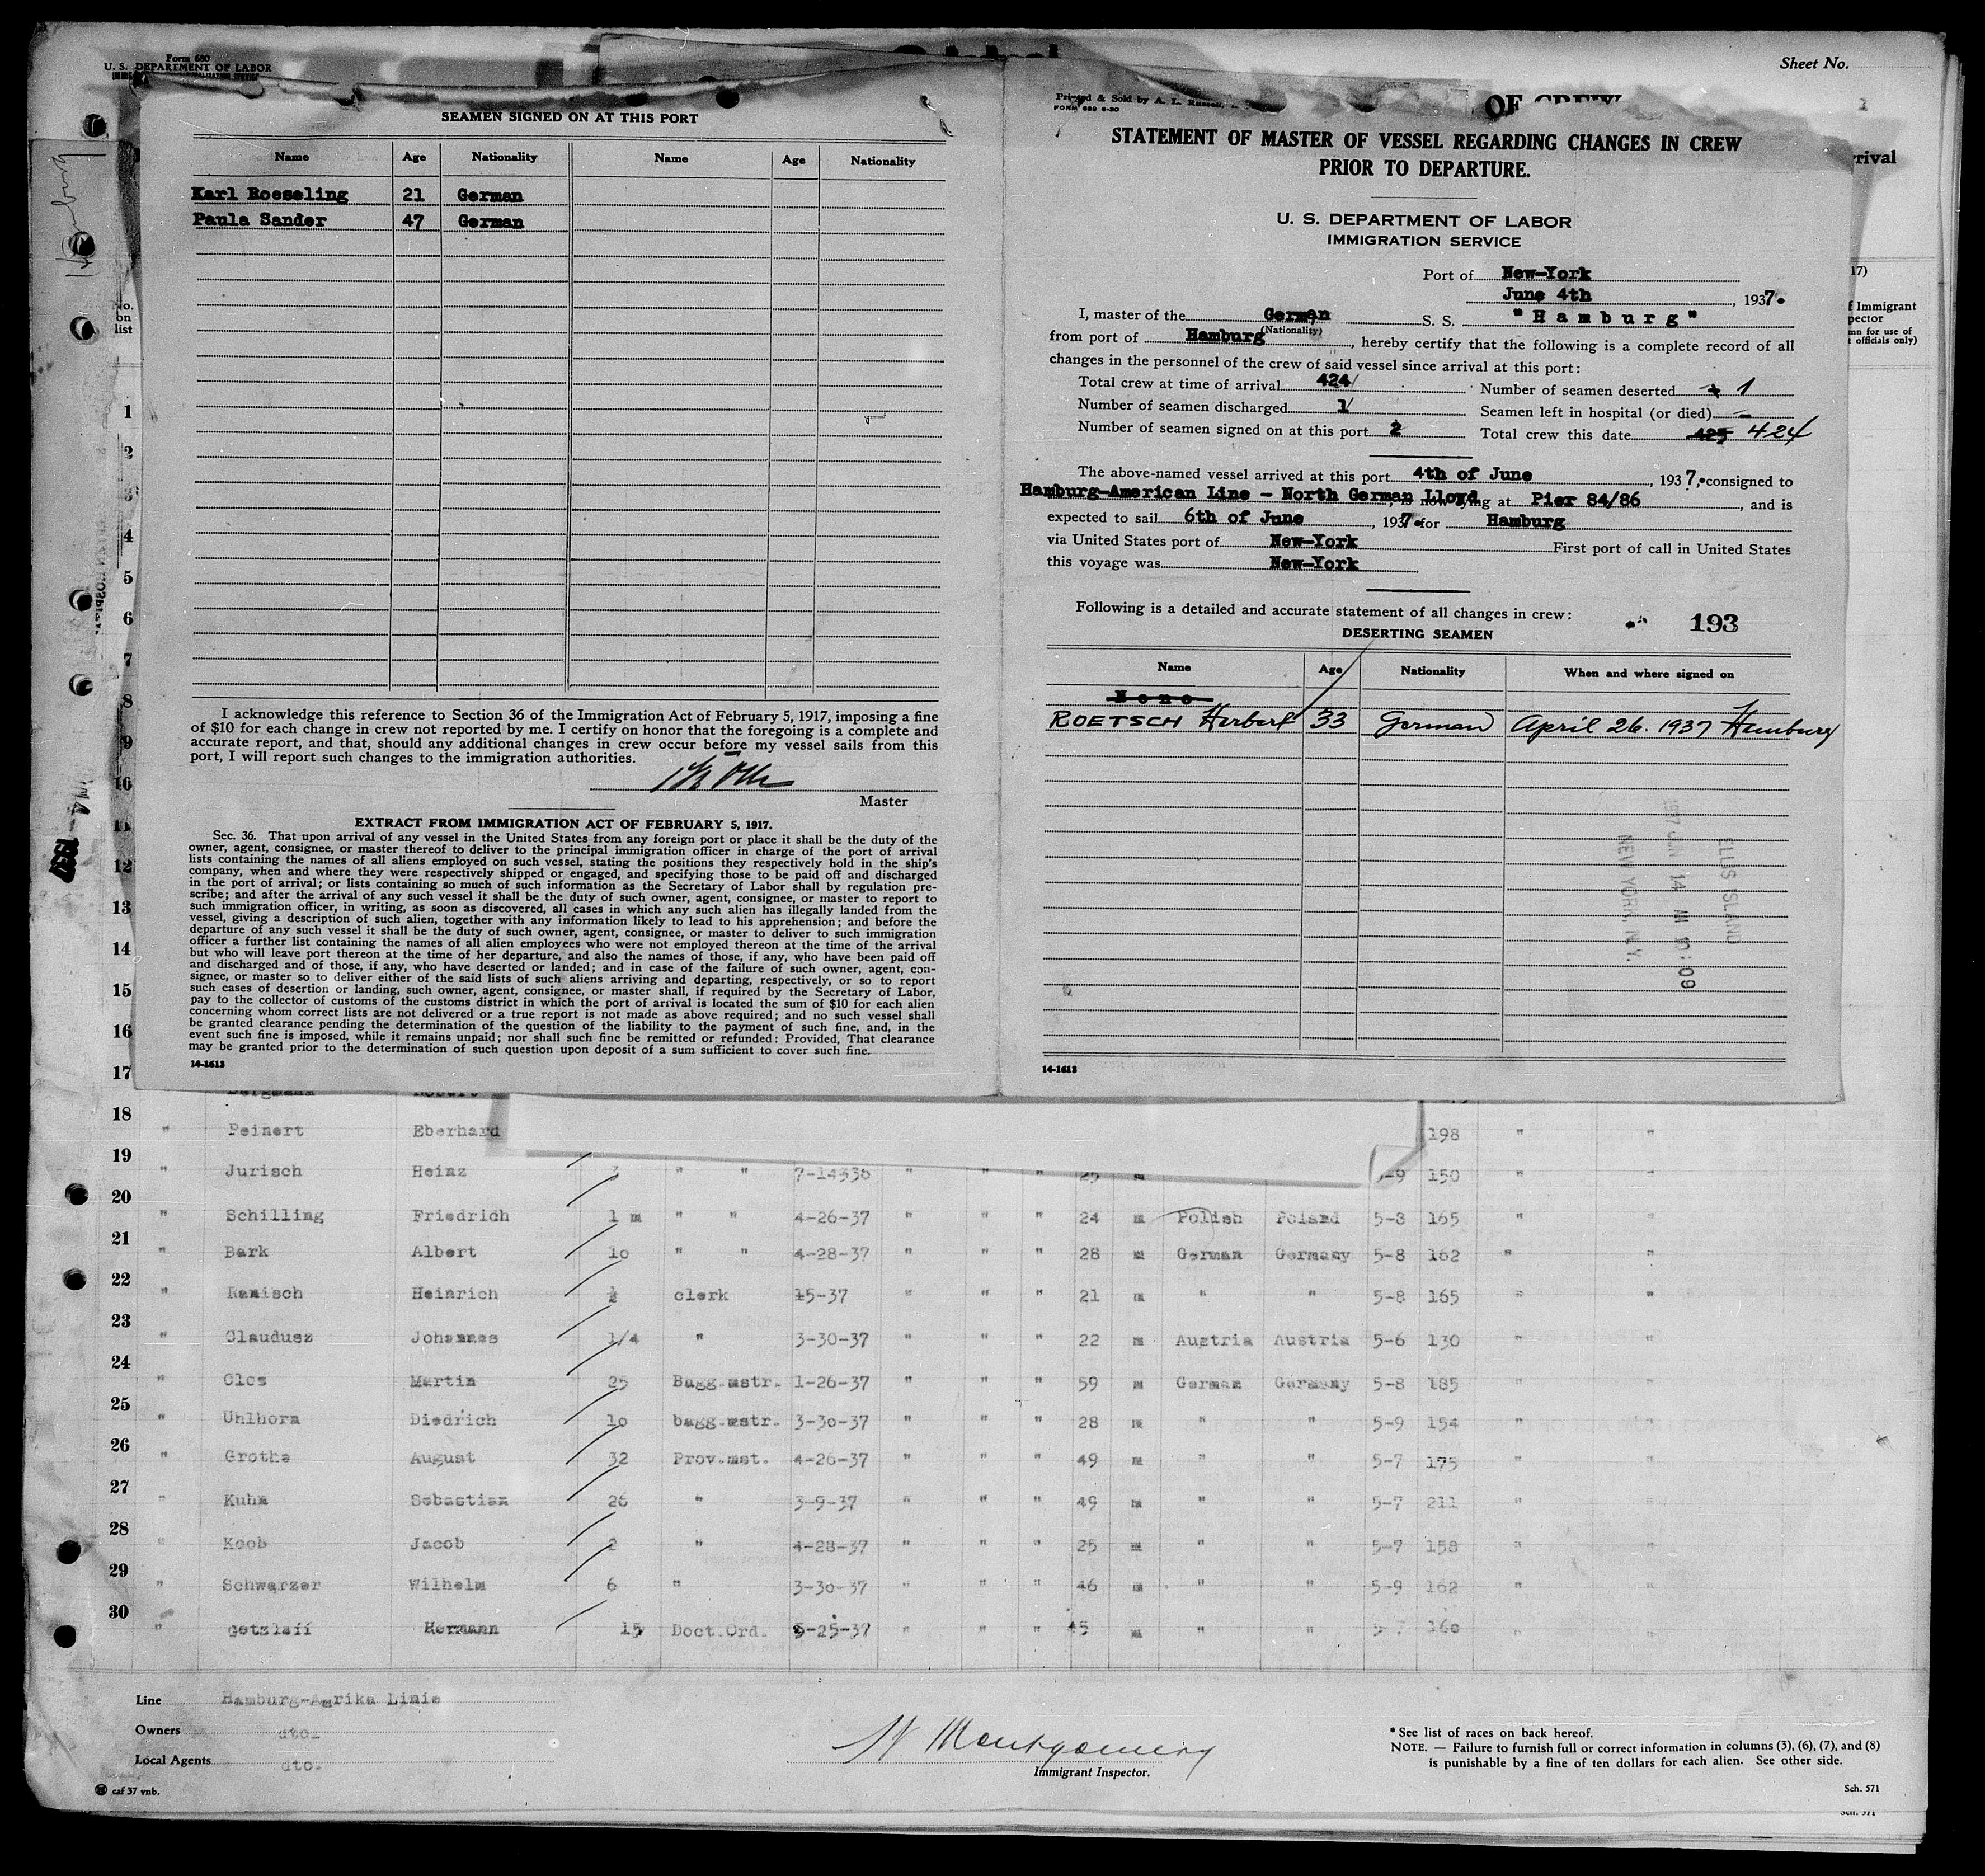 Form 680
U. S. DEPARTMENT OF LABOR
Sheet No.
SEAMEN SIGNED ON AT THIS PORT
Name Age Nationality Name Age Nationality
Karl Roeseling 21 German
Paula Sander 47 German
I acknowledge this reference to Section 36 of the Immigration Act of February 5, 1917, imposing a fine
of $10 for each change in crew not reported by me. I certify on honor that the foregoing is a complete and
accurate report, and that, should any additional changes in crew occur before my vessel sails from this
port, I will report such changes to the immigration authorities.
Master
EXTRACT FROM IMMIGRATION ACT OF FEBRUARY 5, 1917.
Sec. 36. That upon arrival of any vessel in the United States from any foreign port or place it shall be the duty of the
owner, agent, consignee, or master thereof to deliver to the principal immigration officer in charge of the port of arrival
lists containing the names of all aliens employed on such vessel, stating the positions they respectively hold in the ship's
company, when and where they were respectively shipped or engaged, and specifying those to be paid off and discharged
in the port of arrival; or lists containing so much of such information as the Secretary of Labor shall by regulation pre-
scribe; and after the arrival of any such vessel it shall be the duty of such owner, agent, consignee, or master to report to
such immigration officer, in writing, as soon as discovered, all cases in which any such alien has illegally landed from the
vessel, giving a description of such alien, together with any information likely to lead to his apprehension; and before the
departure of any such vessel it shall be the duty of such owner, agent, consignee, or master to deliver to such immigration
officer a further list containing the names of all alien employees who were not employed thereon at the time of the arrival
but who will leave port thereon at the time of her departure, and also the names of those, if any, who have been paid off
and discharged and of those, if any, who have deserted or landed; and in case of the failure of such owner, agent, con-
signee, or master so to deliver either of the said lists of such aliens arriving and departing, respectively, or so to report
such cases of desertion or landing, such owner, agent, consignee, or master shall, if required by the Secretary of Labor,
pay to the collector of customs of the customs district in which the port of arrival is located the sum of $10 for each alien
concerning whom correct lists are not delivered or a true report is not made as above required; and no such vessel shall
be granted clearance pending the determination of the question of the liability to the payment of such fine, and, in the
event such fine is imposed, while it remains unpaid; nor shall such fine be remitted or refunded: Provided, That clearance
may be granted prior to the determination of such question upon deposit of a sum sufficient to cover such fine.
14-1613
Printed & Sold by A. L.
FORM 689 6-30
OF CREW
STATEMENT OF MASTER OF VESSEL REGARDING CHANGES IN CREW
PRIOR TO DEPARTURE.
U. S. DEPARTMENT OF LABOR
IMMIGRATION SERVICE
Port of New-York
June 4th, 1937.
I, master of the German S. S. "Hamburg"
(Nationality)
from port of Hamburg, hereby certify that the following is a complete record of all
changes in the personnel of the crew of said vessel since arrival at this port:
Total crew at time of arrival 424 Number of seamen deserted 1
Number of seamen discharged 1 Seamen left in hospital (or died) -
Number of seamen signed on at this port 2 Total crew this date 425 424
The above-named vessel arrived at this port 4th of June, 1937, consigned to
Hamburg-American Line - North German Lloyd, is now lying at Pier 84/86, and is
expected to sail 6th of June, 1937. for Hamburg
via United States port of New-York First port of call in United States
this voyage was New-York
Following is a detailed and accurate statement of all changes in crew:
193
DESERTING SEAMEN
Name Age Nationality When and where signed on
None
ROETSCH Herbert 33 German April 26. 1937 Hamburg
ELLIS ISLAND
1937 JUN 14 AM 5:09
NEW YORK, N.Y.
14-1613
rival
17)
f Immigrant
pector
mn for use of
t officials only)
No.
on
list
1
2
3
4
5
6
7
8
9
10
11
12
13
14
15
16
17
18 " Peinert Eberhard 198 " "
19 " Jurisch Heinz 3 " " " " " 25 m 5-9 150 " "
20 " Schilling Friedrich 1 m " " 4-26-37 " " " 24 m Polish Poland 5-8 165 " "
21 " Bark Albert 10 " " 4-28-37 " " " 28 m German Germany 5-8 162 " "
22 " Ramisch Heinrich ½ clerk 15-37 " " " 21 m " " 5-8 165 " "
23 " Claudusz Johannes 1/4 " 3-30-37 " " " 22 m Austria Austria 5-6 130 " "
24 " Clos Martin 25 Bagg.mstr. 1-26-37 " " " 59 m German Germany 5-8 185 " "
25 " Uhlhorn Diedrich 10 bagg.mstr. 3-30-37 " " " 28 m " " 5-9 154 " "
26 " Grothe August 32 Prov.mst. 4-26-37 " " " 49 m " " 5-7 175 " "
27 " Kuhn Sebastian 26 " 3-9-37 " " " 49 m " " 5-7 211 " "
28 " Koob Jacob 2 " 4-28-37 " " " 25 m " " 5-7 158 " "
29 " Schwarzer Wilhelm 6 " 3-30-37 " " " 46 m " " 5-9 162 " "
30 " Getzlaff Hermann 15 Doct.Ord. 5-25-37 " " " 45 m " " 5-7 160 " "
Line Hamburg-Amrika Linie
Owners dto.
Local Agents dto.
W Montgomery
Immigrant Inspector.
* See list of races on back hereof.
NOTE. — Failure to furnish full or correct information in columns (3), (6), (7), and (8)
is punishable by a fine of ten dollars for each alien. See other side.
caf 37 vnb.
Sch. 571
Sch. 571